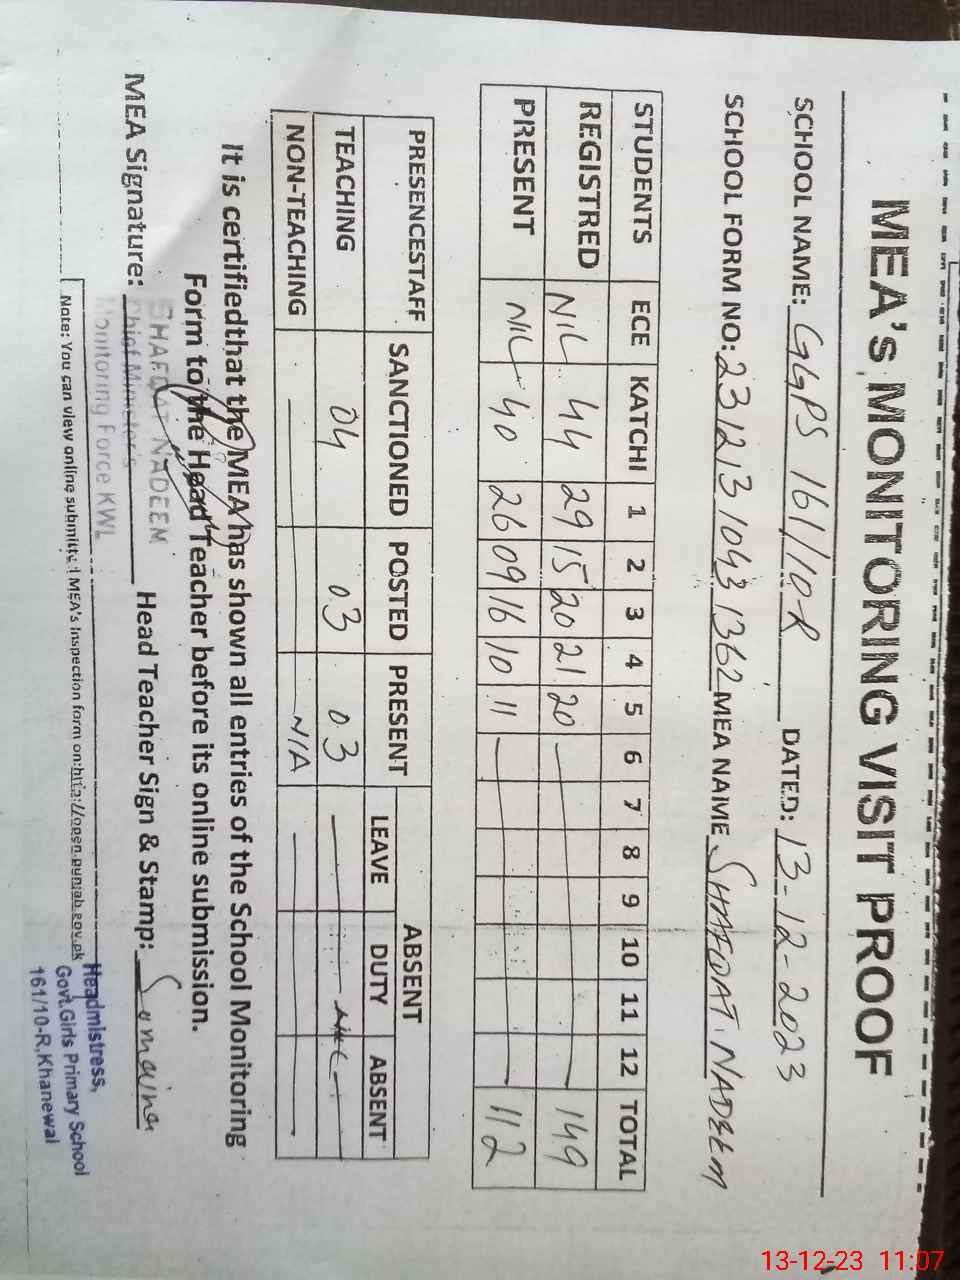 MEA's MONITORING VISIT PROOF
SCHOOL NAME: GGPS 161/10-R DATED: 13-12-2023
SCHOOL FORM NO: 23121310431362 MEA NAME SHAFQAT. NADEEM
STUDENTS ECE KATCHI 1 2 3 4 5 6 7 8 9 10 11 12 TOTAL
REGISTRED NIL 44 29 15 20 21 20 149
PRESENT NIL 40 26 09 16 10 11 112
PRESENCESTAFF SANCTIONED POSTED PRESENT ABSENT
LEAVE DUTY ABSENT
TEACHING 04 03 03
NON-TEACHING N/A
It is certifiedthat the MEA has shown all entries of the School Monitoring
Form to the Head Teacher before its online submission.
SHAFQAT NADEEM
Chief Minister's
Monitoring Force KWL
MEA Signature: Head Teacher Sign & Stamp: Somaina
Headmistress,
Govt.Girls Primary School
161/10-R,Khanewal
Note: You can view online submitted MEA's Inspection form on:http://open.punjab.gov.pk
13-12-23 11:07